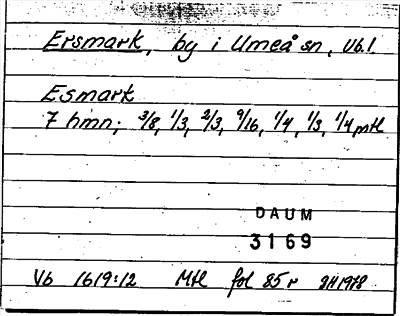 Ersmark, by i Umeå sn, Vb.l.
Esmark
7 hmn; 3/8, 1/3, 2/3, 9/16, 1/4, 1/3, 1/4 mtl
DAUM
3169
Vb 1619:12 Mtl fol 85r GH 1978